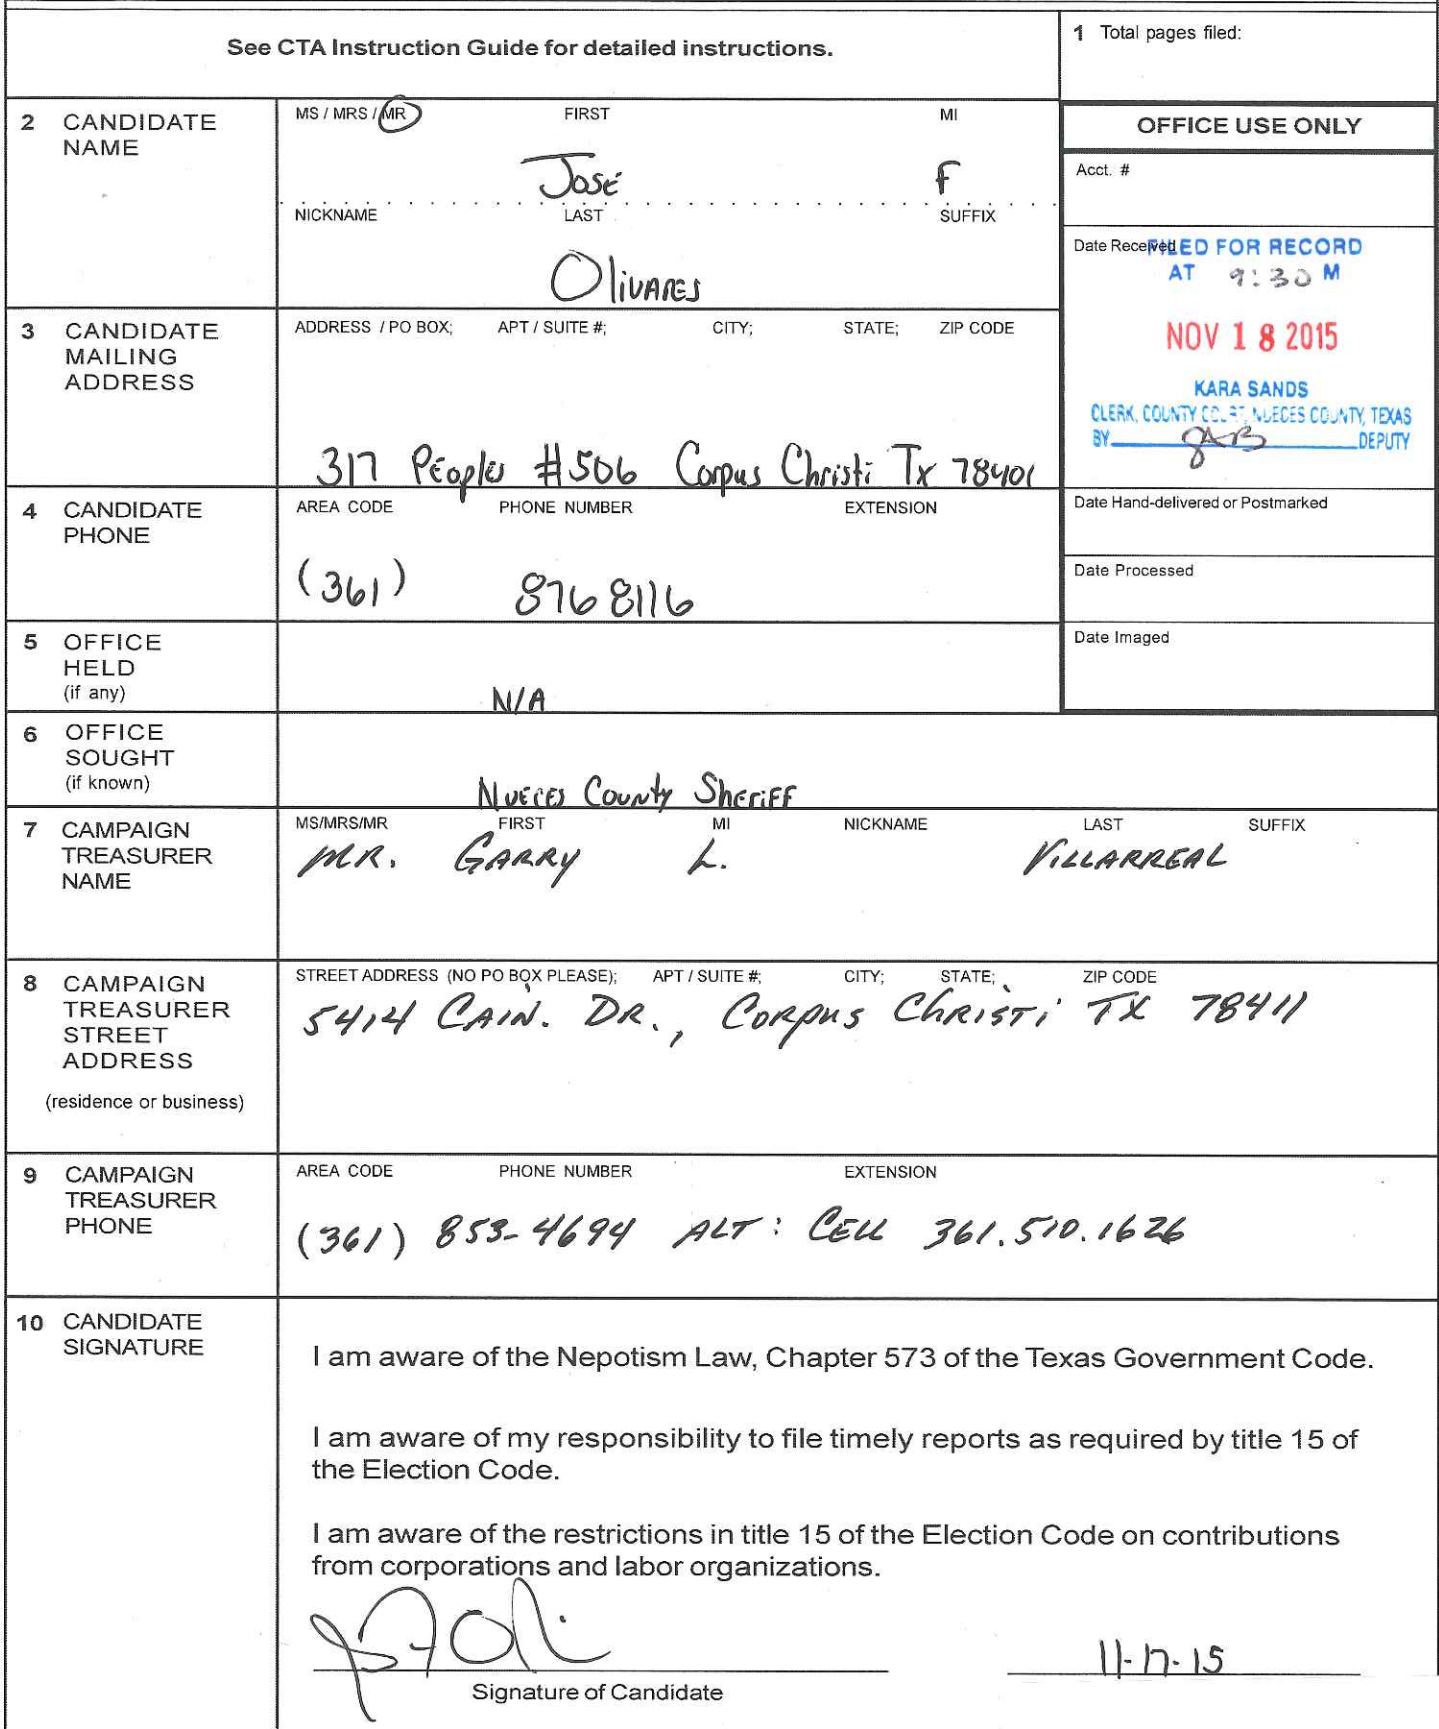 See CTA Instruction Guide for detailed instructions.
1 Total pages filed:
2 CANDIDATE NAME
MS / MRS / MR FIRST MI
José F
NICKNAME LAST SUFFIX
Olivares
OFFICE USE ONLY
Acct. #
Date Received
FILED FOR RECORD
AT 9:30 M
NOV 18 2015
KARA SANDS
CLERK, COUNTY COURT, NUECES COUNTY, TEXAS
BY DEPUTY
3 CANDIDATE MAILING ADDRESS
ADDRESS / PO BOX; APT / SUITE #; CITY; STATE; ZIP CODE
317 Peoples #506 Corpus Christi Tx 78401
Date Hand-delivered or Postmarked
4 CANDIDATE PHONE
AREA CODE PHONE NUMBER EXTENSION
(361) 876 8116
Date Processed
5 OFFICE HELD (if any)
N/A
Date Imaged
6 OFFICE SOUGHT (if known)
Nueces County Sheriff
7 CAMPAIGN TREASURER NAME
MS/MRS/MR FIRST MI NICKNAME LAST SUFFIX
MR. GARRY L. VILLARREAL
8 CAMPAIGN TREASURER STREET ADDRESS
(residence or business)
STREET ADDRESS (NO PO BOX PLEASE); APT / SUITE #; CITY; STATE; ZIP CODE
5414 CAIN. DR., CORPUS CHRISTI TX 78411
9 CAMPAIGN TREASURER PHONE
AREA CODE PHONE NUMBER EXTENSION
(361) 853-4694 ALT: CELL 361.510.1626
10 CANDIDATE SIGNATURE
I am aware of the Nepotism Law, Chapter 573 of the Texas Government Code.
I am aware of my responsibility to file timely reports as required by title 15 of
the Election Code.
I am aware of the restrictions in title 15 of the Election Code on contributions
from corporations and labor organizations.
11-17-15
Signature of Candidate